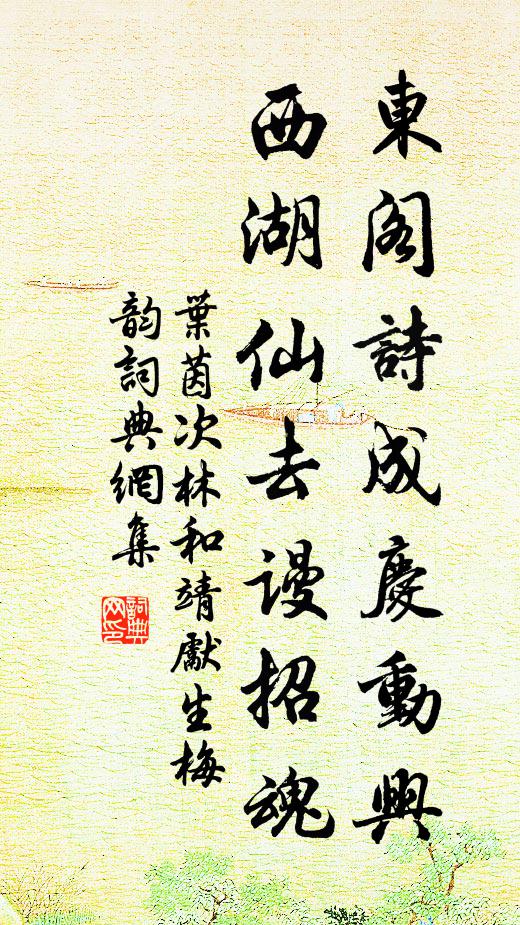 東閣詩成慶動興
西湖仙去謾招魂
葉茵次林和靖獻生梅
韵詞典網集
詞典網印